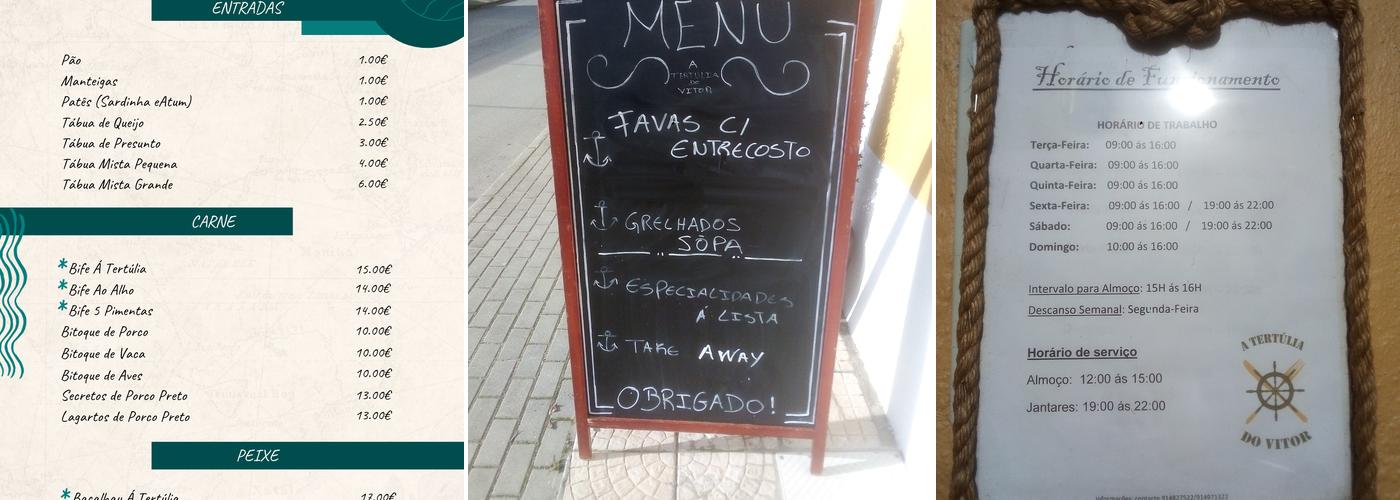 ENTRADAS
Pão 1.00€
Manteigas 1.00€
Patês (Sardinha eAtum) 1.00€
Tábua de Queijo 2.50€
Tábua de Presunto 3.00€
Tábua Mista Pequena 4.00€
Tábua Mista Grande 6.00€
CARNE
*Bife Á Tertúlia 15.00€
*Bife Ao Alho 14.00€
*Bife 5 Pimentas 14.00€
Bitoque de Porco 10.00€
Bitoque de Vaca 10.00€
Bitoque de Aves 10.00€
Secretos de Porco Preto 13.00€
Lagartos de Porco Preto 13.00€
PEIXE
*Bacalhau Á Tertúlia 17.00€
MENU
A
TERTULIA
DO
VITOR
FAVAS C/
ENTRECOSTO
GRELHADOS
SOPA
ESPECIALIDADES
Á LISTA
TAKE AWAY
OBRIGADO!
Horário de Funcionamento
HORÁRIO DE TRABALHO
Terça-Feira: 09:00 ás 16:00
Quarta-Feira: 09:00 ás 16:00
Quinta-Feira: 09:00 ás 16:00
Sexta-Feira: 09:00 ás 16:00 / 19:00 ás 22:00
Sábado: 09:00 ás 16:00 / 19:00 ás 22:00
Domingo: 10:00 ás 16:00
Intervalo para Almoço: 15H ás 16H
Descanso Semanal: Segunda-Feira
Horário de serviço
Almoço: 12:00 ás 15:00
Jantares: 19:00 ás 22:00
A TERTÚLIA
DO VITOR